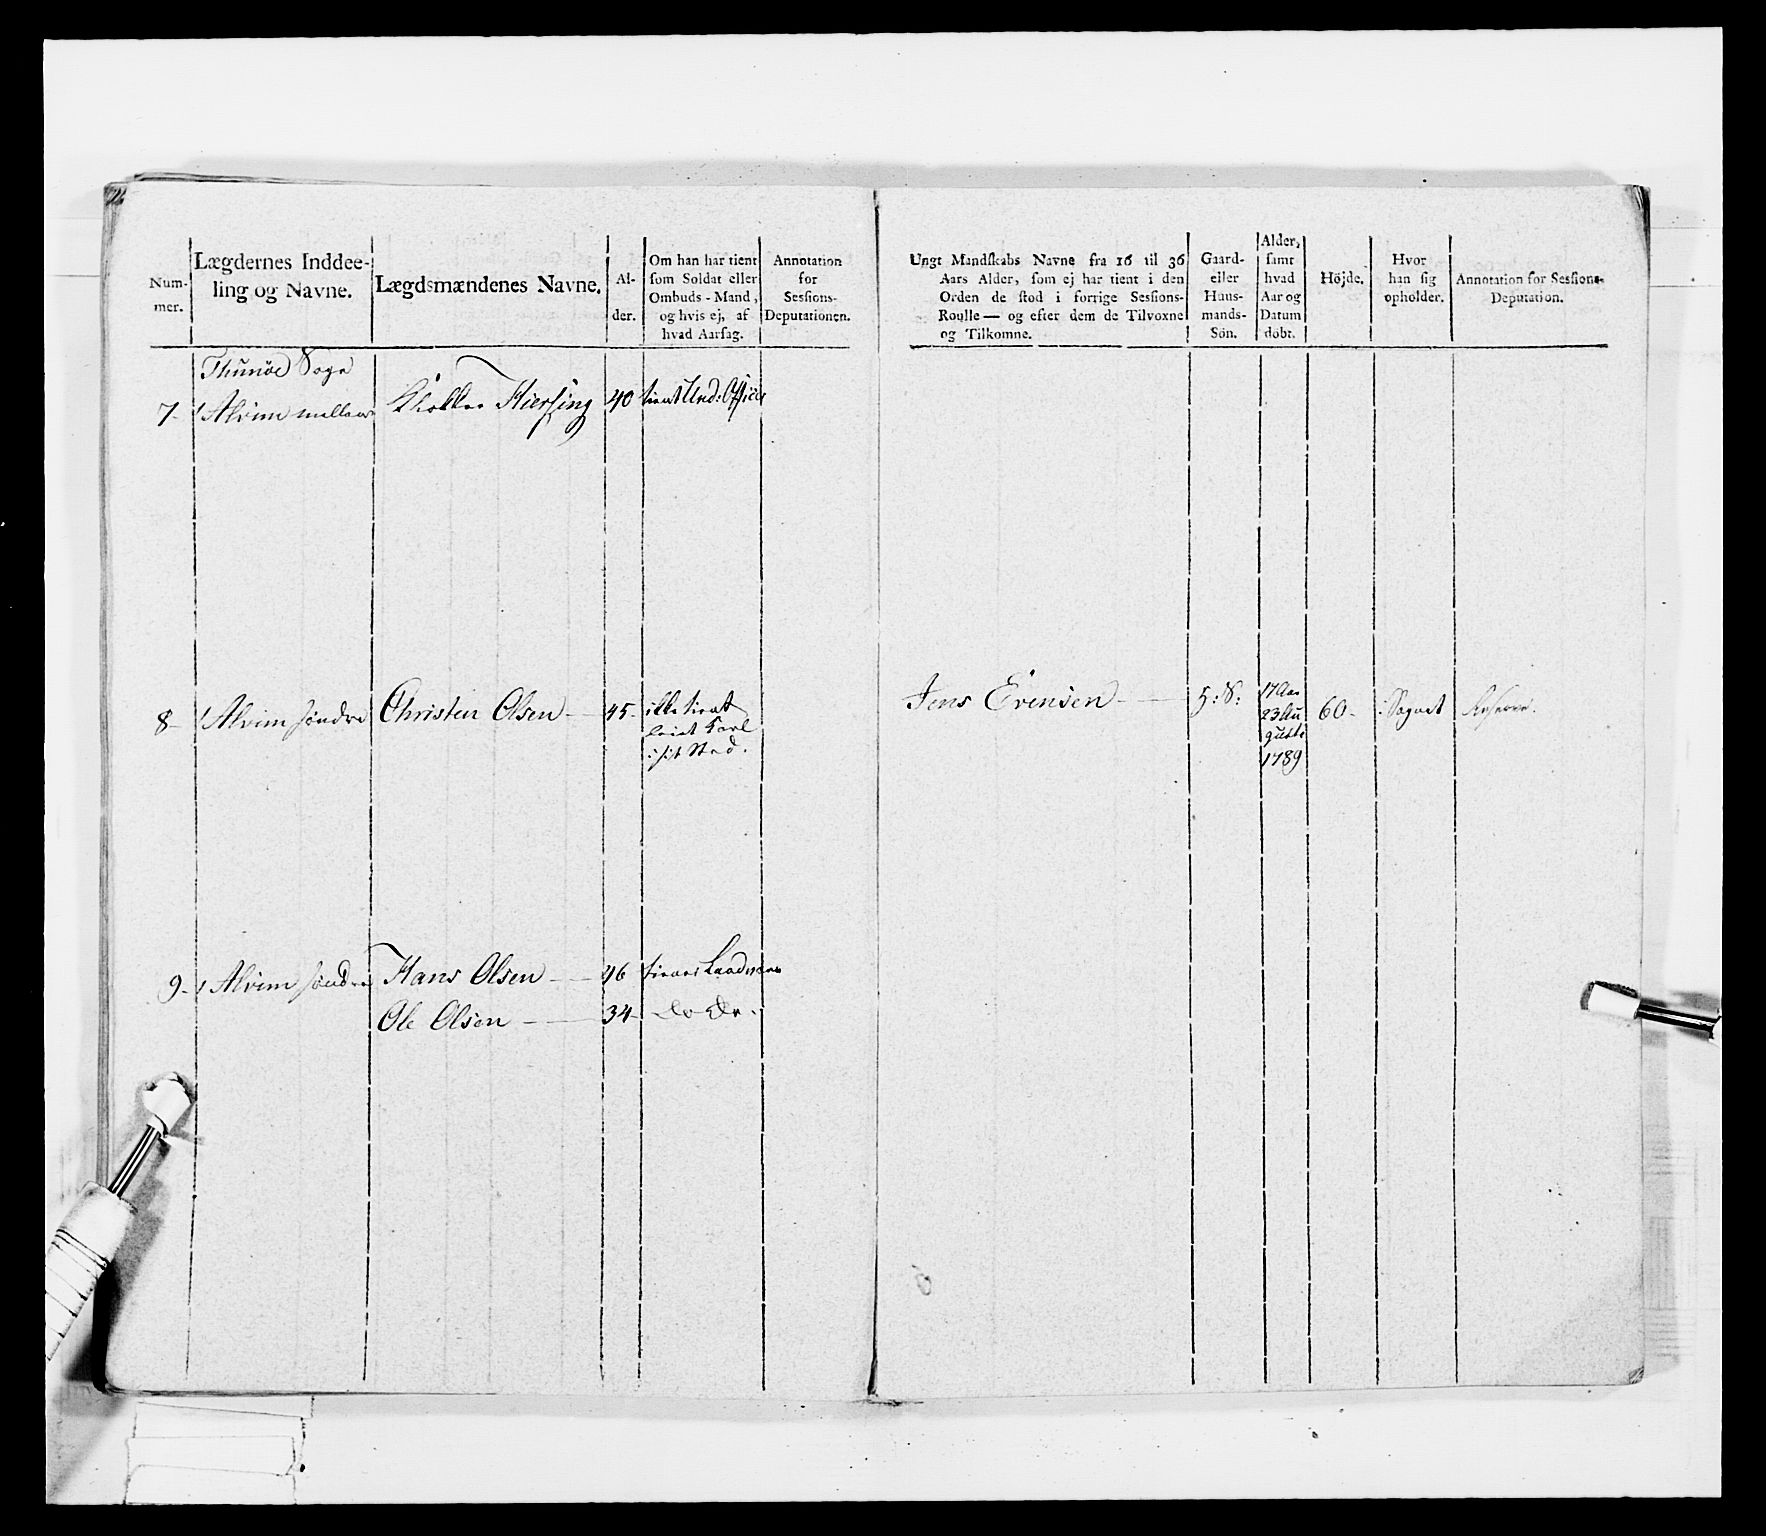 Num-
mer.
Lægdernes Inddee-
ling og Navne.
Lægdsmændenes Navne.
Al-
der.
Om han har tient
som Soldat eller
Ombuds-Mand,
og hvis ej, af
hvad Aarsag.
Annotation
for
Sessions-
Deputationen.
Thunöe Sogn
7- 1 Alvim mellem Kierfing 40 tient Und: Officer
8- 1 Alvim söndre Christen Olsen 45- ikke tient
leiet Karl
i sit Sted.
9- 1 Alvim söndre Hans Olsen 46 tienes Landværn
Ole Olsen 34- do do.
Ungt Mandskabs Navne fra 16 til 36
Aars Alder, som ej har tient i den
Orden de stod i forrige Sessions-
Roulle — og efter dem de Tilvoxne
og Tilkomne.
Gaard-
eller
Huus-
mands-
Sön.
Alder,
samt
hvad
Aar og
Datum
döbt.
Höjde.
Hvor
han sig
opholder.
Annotation for Sessions-
Deputation.
Jens Evensen G:S: 17 Aar
23 Au
gusti
1789
60- i Sognet Reserve.